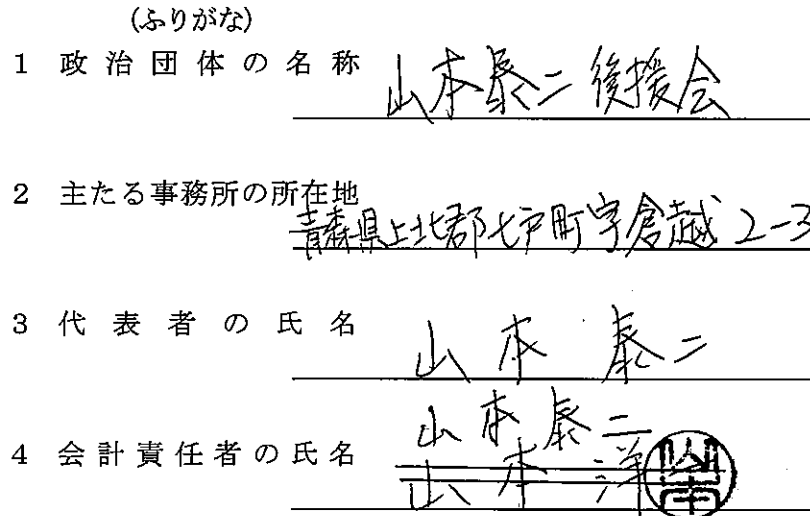 (ふりがな)
1 政治団体の名称 山本泰二後援会
2 主たる事務所の所在地 青森県上北郡七戸町字倉越2-3
3 代表者の氏名 山本 泰二
山本泰二
4 会計責任者の氏名 山本 洋 山本